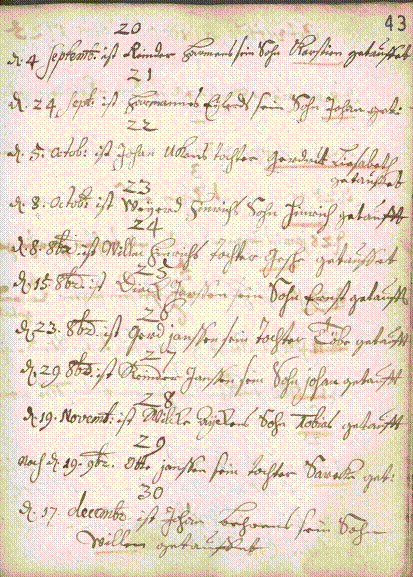 43
20
d. 4 Septemb: ist Reinder Harmens sein Sohn Karstien getauffet
21
d. 24 Sept: ist Harmannus Eylerds sein Sohn Johan get:
22
d. 5. Octob: ist Johan Ukens tochter Gerdrut Liesabeth
getauffet
23
d. 8. Octob: ist Weyerd Hinrichs Sohn Hinrich getaufft
24
d. 8. 8br. ist Willm Hinrichs tochter getauffet
25
d. 15. 8br. ist Dirck Janssen sein Sohn Ernst getaufft
26
d. 23. 8br. ist Gerd janssen sein tochter Tobe getaufft
27
d. 29. 8br. ist Reinder Janssen sein Sohn johan getaufft
28
d. 19. Novemb: ist Wilke Sohn Tobias getaufft
29
noch d. 19. 9br. Otto janssen sein tochter get:
30
d. 17. decembr ist Johan Behrens sein Sohn
Willem getauffet